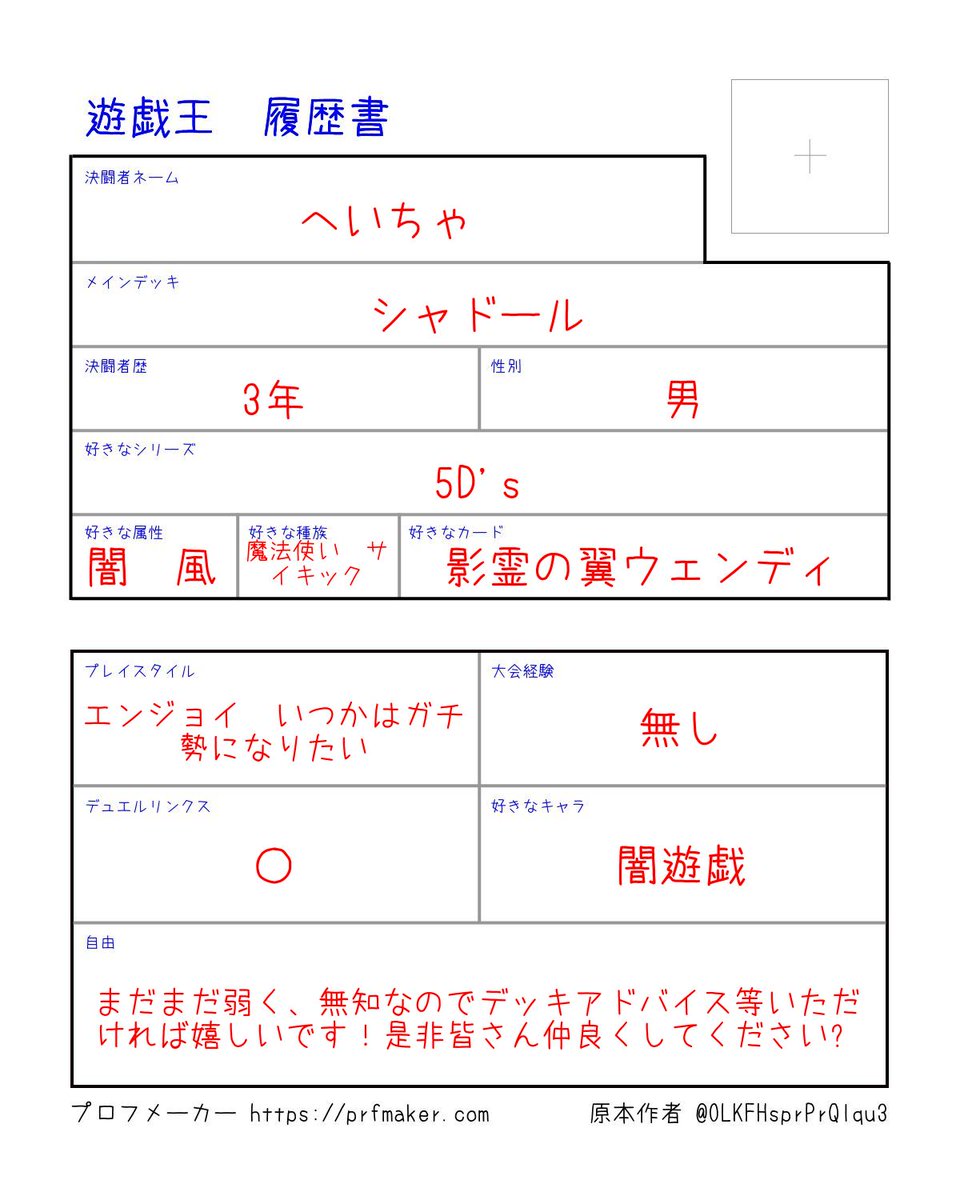 遊戯王　履歴書
決闘者ネーム
へいちゃ
メインデッキ
シャドール
決闘者歴
3年
性別
男
好きなシリーズ
5D's
好きな属性
闇　風
好きな種族
魔法使い　サ
イキック
好きなカード
影霊の翼ウェンディ
プレイスタイル
エンジョイ　いつかはガチ
勢になりたい
大会経験
無し
デュエルリンクス
○
好きなキャラ
闇遊戯
自由
まだまだ弱く、無知なのでデッキアドバイス等いただ
ければ嬉しいです！是非皆さん仲良くしてください?
プロフメーカー https://prfmaker.com
原本作者 @OLKFHsprPrQlqu3